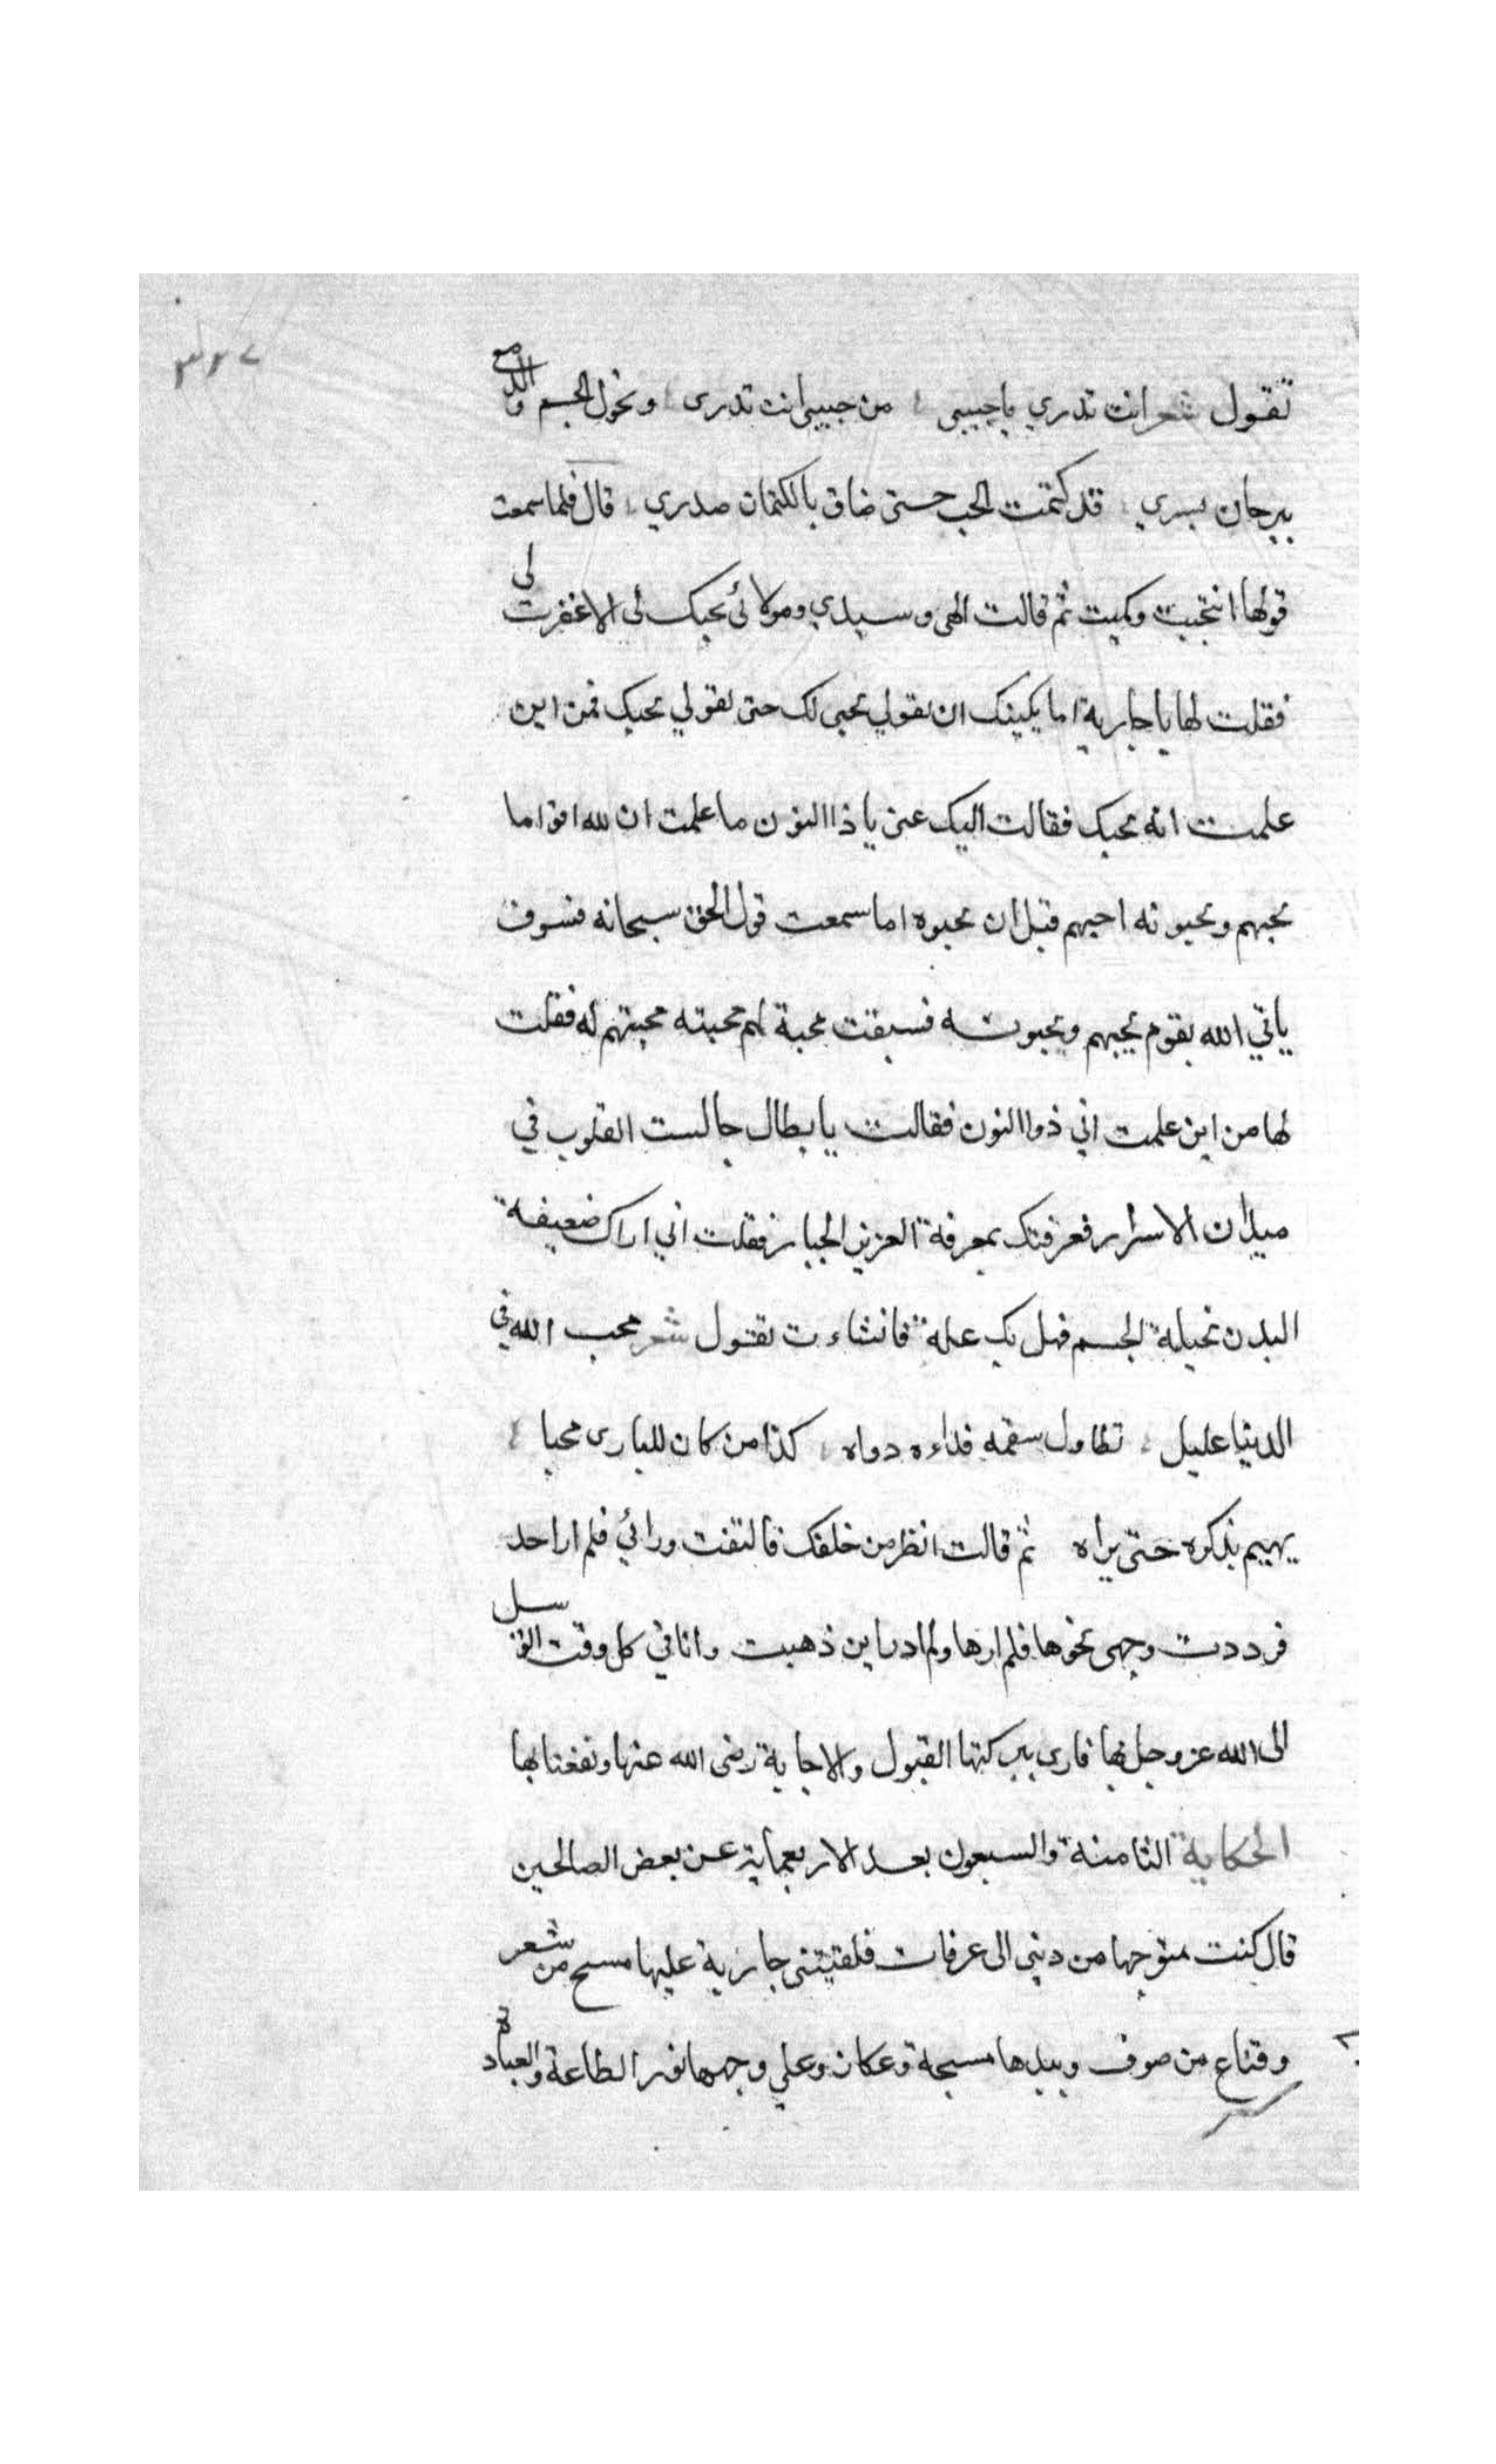 ٣٦٧
تقول شعر انت تدري يا حبيبي من حبيبي انت تدري ونحول الجسم والدمع
يبرحان بسري قد كتمت الحب حتى ضاق بالكتمان صدري قال فلما سمعت
قولها انتحبت وبكيت ثم قالت الهي وسيدي ومولائي بحبك لي الا غفرت لي
فقلت لها يا جارية اما يكفيك ان تقولي بحبي لك حتى تقولي بحبك فمن اين
علمت انه يحبك فقالت اليك عني يا ذا النون ما علمت ان لله اقواما
يحبهم ويحبونه احبهم قبل ان يحبوه اما سمعت قول الحق سبحانه فسوف
ياتي الله بقوم يحبهم ويحبونه فسبقت محبة لهم محبته محبتهم له فقلت
لها من اين علمت اني ذوا النون فقالت يا بطال جالست القلوب في
ميدان الاسرار فعرفتك بمعرفة العزيز الجبار فقلت اني اراك ضعيفة
البدن نحيلة الجسم فهل بك علة فانشاءت تقول شعر محب الله في
الدنيا عليل تطاول سقمه فداءه دواه كذا من كان للباري محبا
يهيم بذكره حتى يراه ثم قالت انظر من خلفك فالتفت ورائي فلم ار احد
فرددت وجهي نحوها فلم ارها ولم ادر اين ذهبت وانا في كل وقت اتوسل
الى الله عز وجل بها فارى ببركتها القبول والاجابة رضى الله عنها ونفعنا بها
الحكاية الثامنة والسبعون بعد الاربعماية عن بعض الصالحين
قال كنت متوجها من ديني الى عرفات فلقيتني جارية عليها مسح من شعر
وقناع من صوف وبيدها مسبحة وعكاز وعلي وجهها نور الطاعة والعبادة